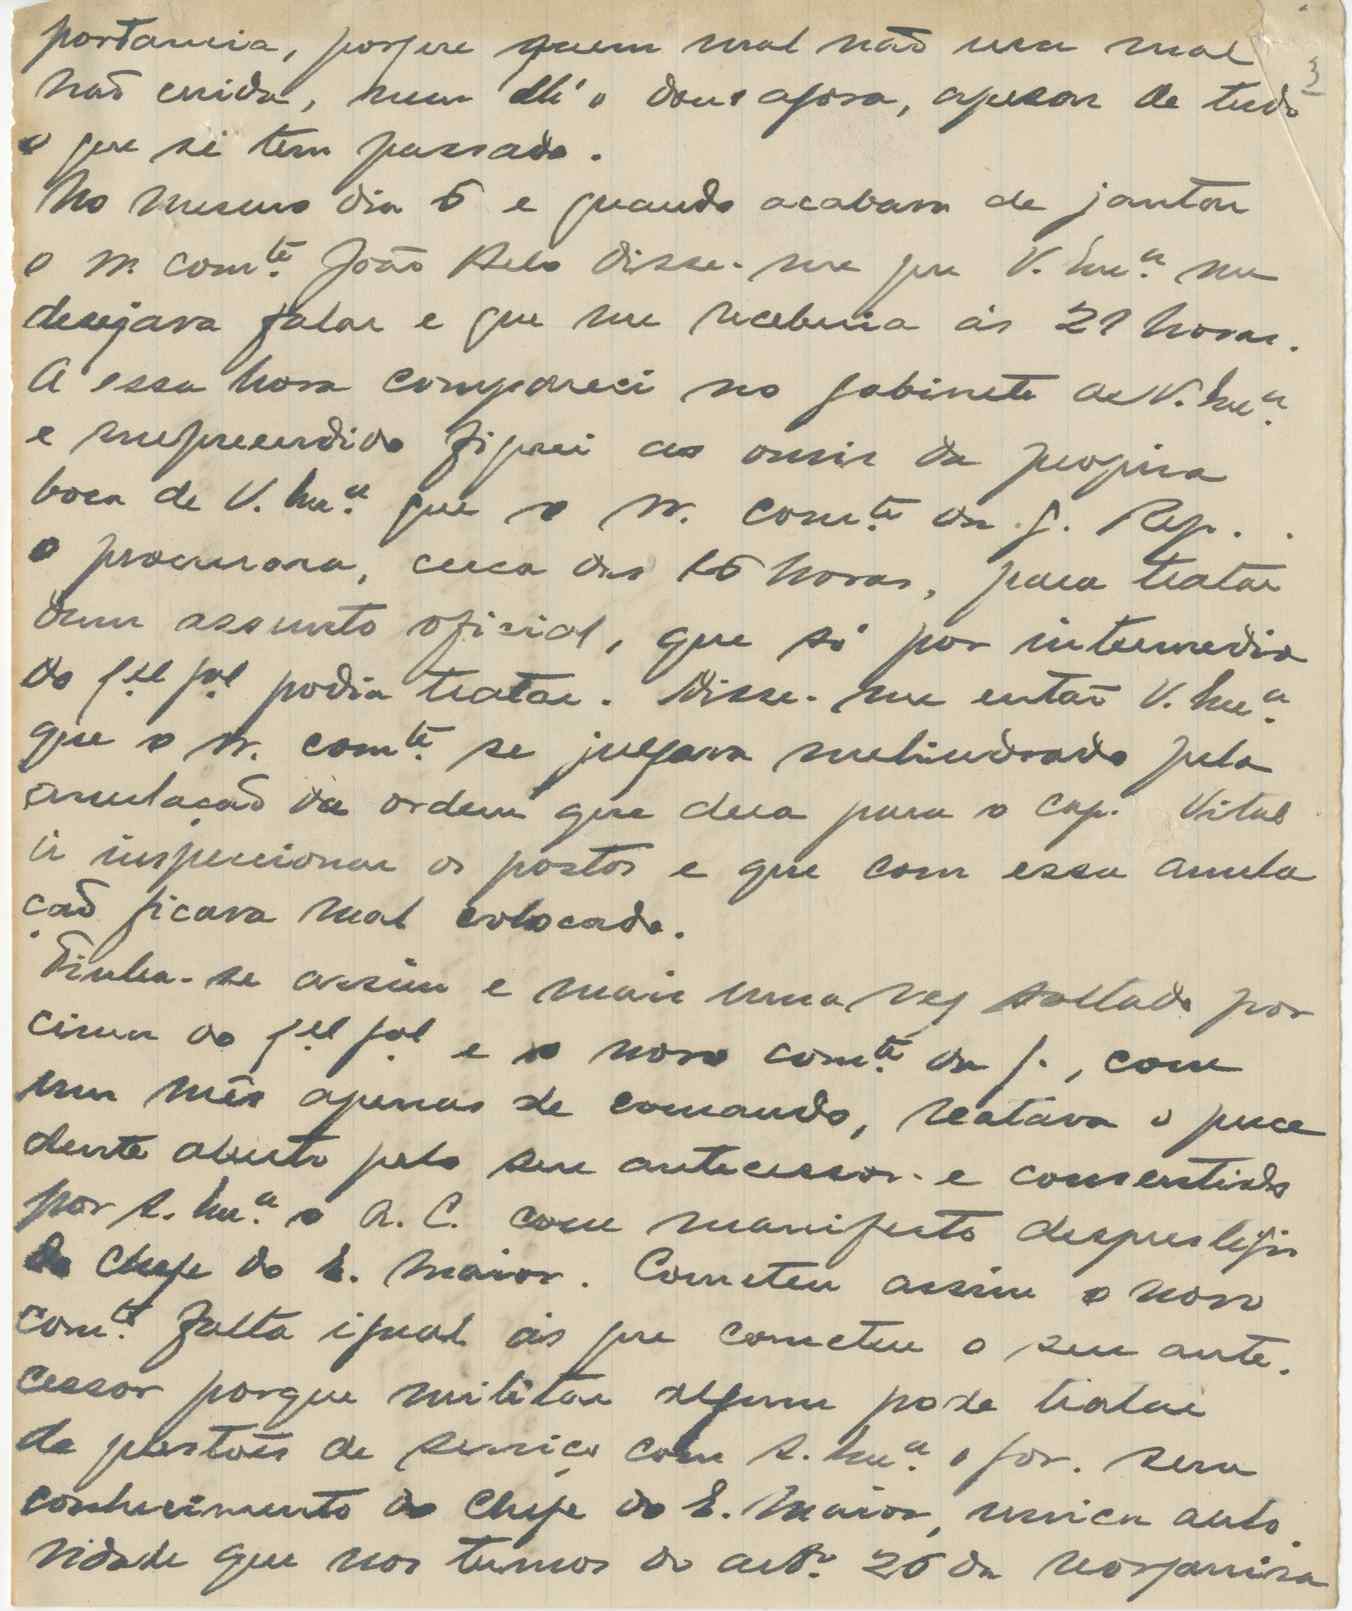 3
portancia, porque quem mal não usa mal
não cuida, nem lh'o dou agora, apesar de tudo
o que se tem passado.
No mesmo dia 5 e quando acabava de jantar
o sr. com.te João Belo disse-me que V. Ex.a me
desejava falar e que me receberia ás 21 horas.
A essa hora compareci no gabinete de V. Ex.a
e surpreendido fiquei ao ouvir da propria
boca de V. Ex.a que o sr. com.te da g. Rep.
o procurara, cerca das 15 horas, para tratar
dum assunto oficial, que só por intermedio
do q.el g.al podia tratar. Disse-me então V. Ex.a
que o sr. com.te se julgava melindrado pela
anulação da ordem que dera para o cap. Vital
ir inspecionar os postos e que com essa anula
ção ficava mal colocado.
Tinha-se assim e mais uma vez saltado por
cima do q.el g.al e o novo com.te da g., com
um mês apenas de comando, reatava o prece
dente aberto pelo seu antecessor e consentido
por S. Ex.a o A. C. com manifesto desprestigio
do Chefe do E. Maior. Cometeu assim o novo
com.te falta igual ás que cometeu o seu ante-
cessor porque militar algum pode tratar
de questões de serviço com S. Ex.a o gov. sem
conhecimento do Chefe do E. Maior, unica auto
ridade que nos termos do art.o 26 da reorganisa